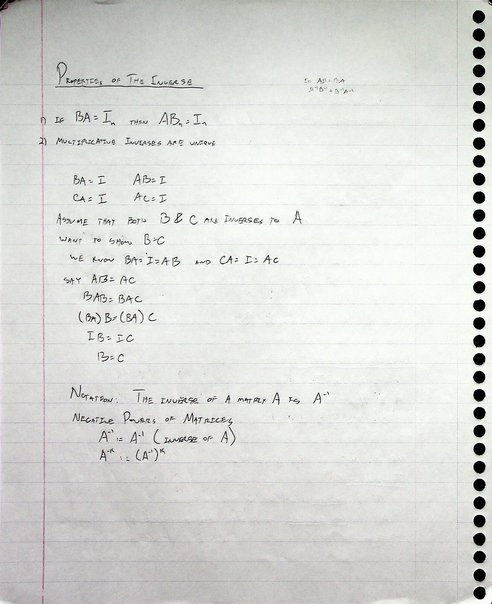 Properties of The Inverse
If AB=BA
A⁻¹B⁻¹=B⁻¹A⁻¹
1) If BA=Iₙ then ABₙ=Iₙ
2) Multiplicative Inverses are unique
BA=I AB=I
CA=I AC=I
Assume that both B & C are inverses to A
Want to show B=C
We know BA=I=AB and CA=I=AC
Say AB=AC
BAB=BAC
(BA)B=(BA)C
IB=IC
B=C
Notation: The inverse of a matrix A is A⁻¹
Negative Powers of Matrices
A⁻¹:=A⁻¹ (inverse of A)
A⁻ᴷ:=(A⁻¹)ᴷ